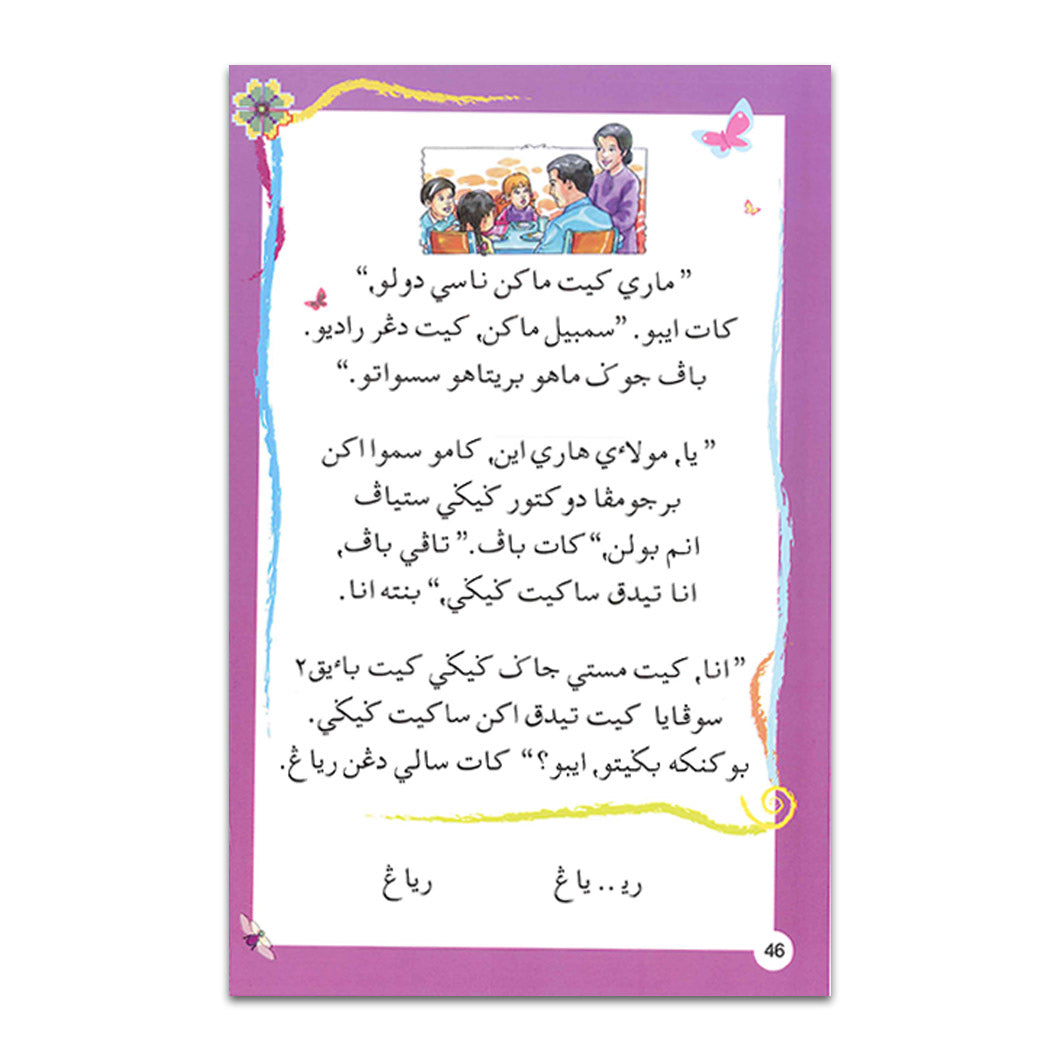 ”ماري كيت ماكن ناسي دولو,“
كات ايبو. ”سمبيل ماكن, كيت دڠر راديو.
باڤ جوݢ ماهو بريتاهو سسواتو.“
”يا, مولاءي هاري اين, كامو سموا اكن
برجومڤا دوكتور ݢيݢي ستياڤ
انم بولن,“ كات باڤ. ”تاڤي باڤ,
انا تيدق ساكيت ݢيݢي,“ بنته انا.
”انا, كيت مستي جاݢ ݢيݢي كيت باءيق٢
سوڤايا كيت تيدق اكن ساكيت ݢيݢي.
بوكنكه بݢيتو, ايبو؟“ كات سالي دڠن رياڠ.
ريـ..ياڠ رياڠ
46